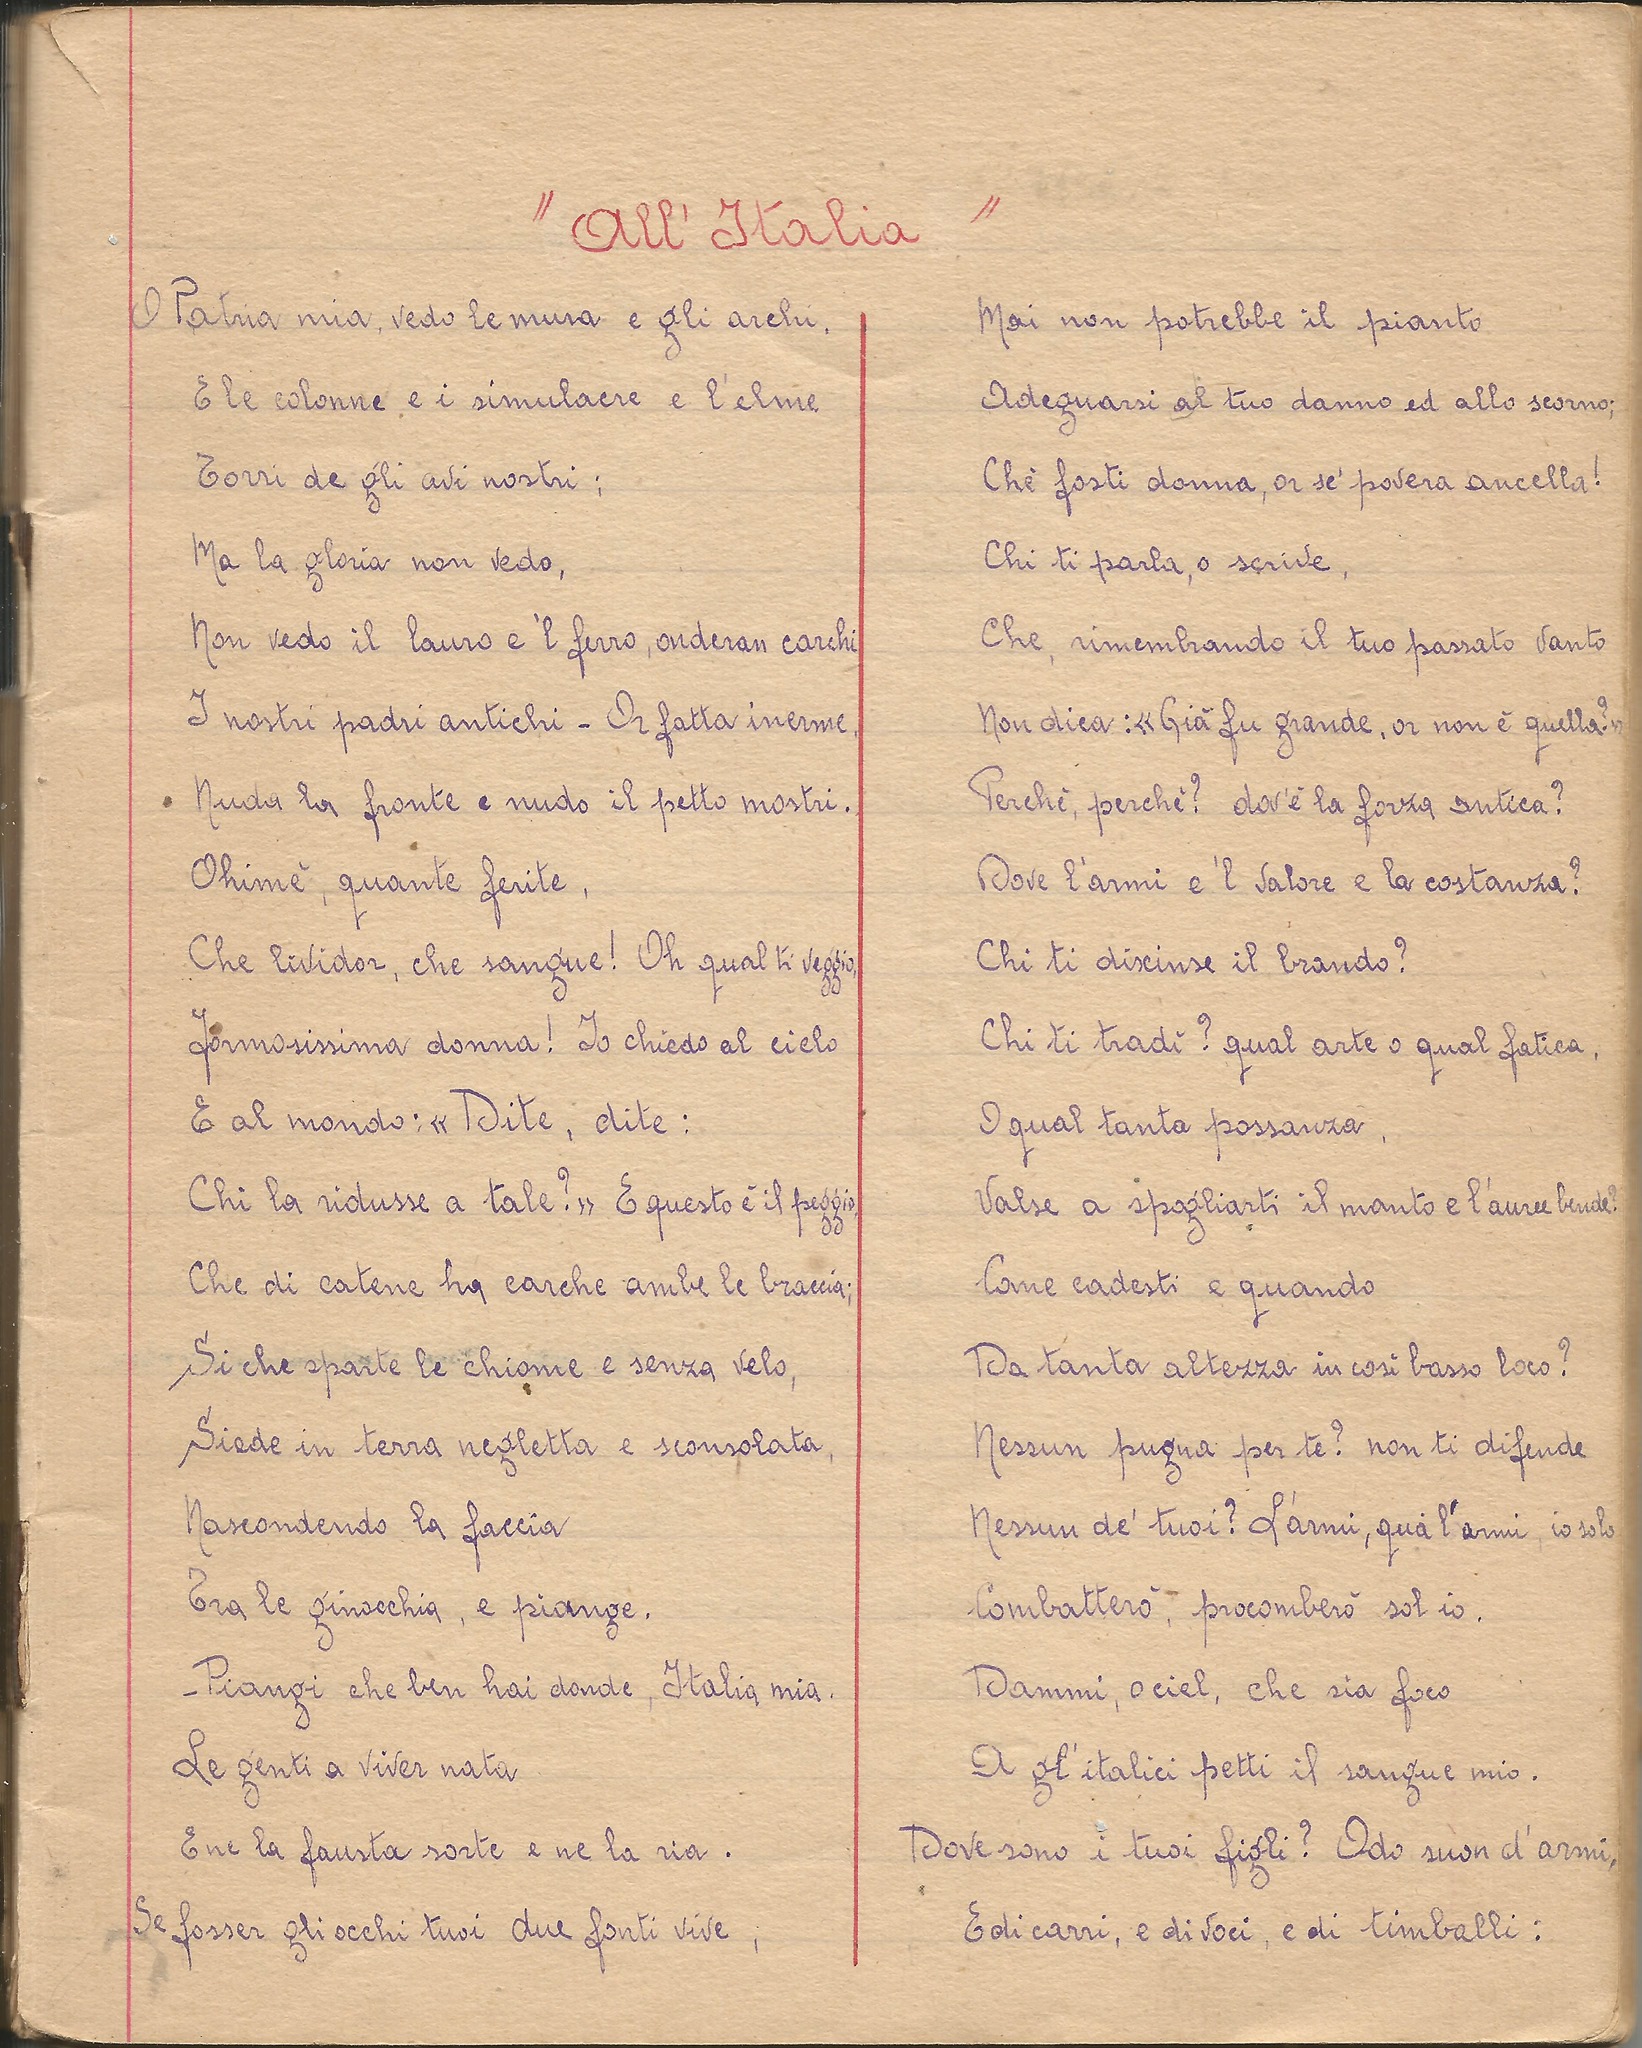 "All'Italia"
O Patria mia, vedo le mura e gli archi,
E le colonne e i simulacre e l'elme
Torri de gli avi nostri;
Ma la gloria non vedo,
Non vedo il lauro e 'l ferro, onderan carchi
I nostri padri antichi - Or fatta inerme,
Nuda la fronte e nudo il petto mostri.
Ohimè, quante ferite,
Che lividor, che sangue! Oh qual ti veggio,
Formosissima donna! Io chiedo al cielo
E al mondo: « Dite, dite:
Chi la ridusse a tale? » E questo è il peggio,
Che di catene ha carche ambe le braccia;
Si che sparte le chiome e senza velo,
Siede in terra negletta e sconsolata,
Nascondendo la faccia
Tra le ginocchia, e piange.
- Piangi che ben hai donde, Italia mia.
Le genti a viver nata
E ne la fausta sorte e ne la ria.
Se fosser gli occhi tuoi due fonti vive,
Mai non potrebbe il pianto
Adeguarsi al tuo danno ed allo scorno;
Chè fosti donna, or se' povera ancella!
Chi ti parla, o scrive,
Che, rimembrando il tuo passato vanto
Non dica: « Già fu grande, or non è quella? »
Perchè, perchè? dov'è la forza antica?
Dove l'armi e 'l valore e la costanza?
Chi ti discinse il brando?
Chi ti tradì? qual arte o qual fatica,
O qual tanta possanza,
Valse a spogliarti il manto e l'auree bende?
Come cadesti e quando
Da tanta altezza in così basso loco?
Nessun pugna per te? non ti difende
Nessun de' tuoi? L'armi, qua l'armi, io solo
Combatterò, procomberò sol io.
Dammi, o ciel, che sia foco
A gl'italici petti il sangue mio.
Dove sono i tuoi figli? Odo suon d'armi,
E di carri, e di voci, e di timballi: